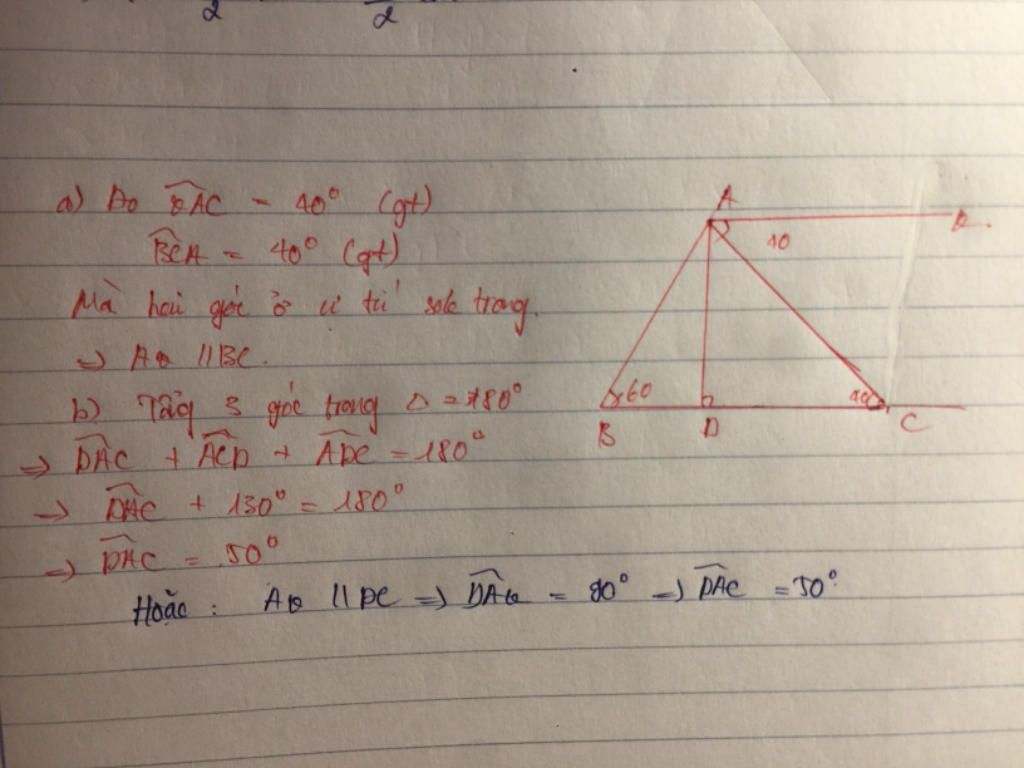 2 2
a) Do QAC = 40° (gt)
BCA = 40° (gt)
Mà hai góc ở vị trí sole trong.
=> AQ // BC.
b) Tổng 3 góc trong Δ = 180°
=> DAC + ACD + ADC = 180°
=> DAC + 130° = 180°
=> DAC = 50°
Hoặc : AQ // DC => DAQ = 90° => DAC = 50°
A
Q.
40
60
40
B D C